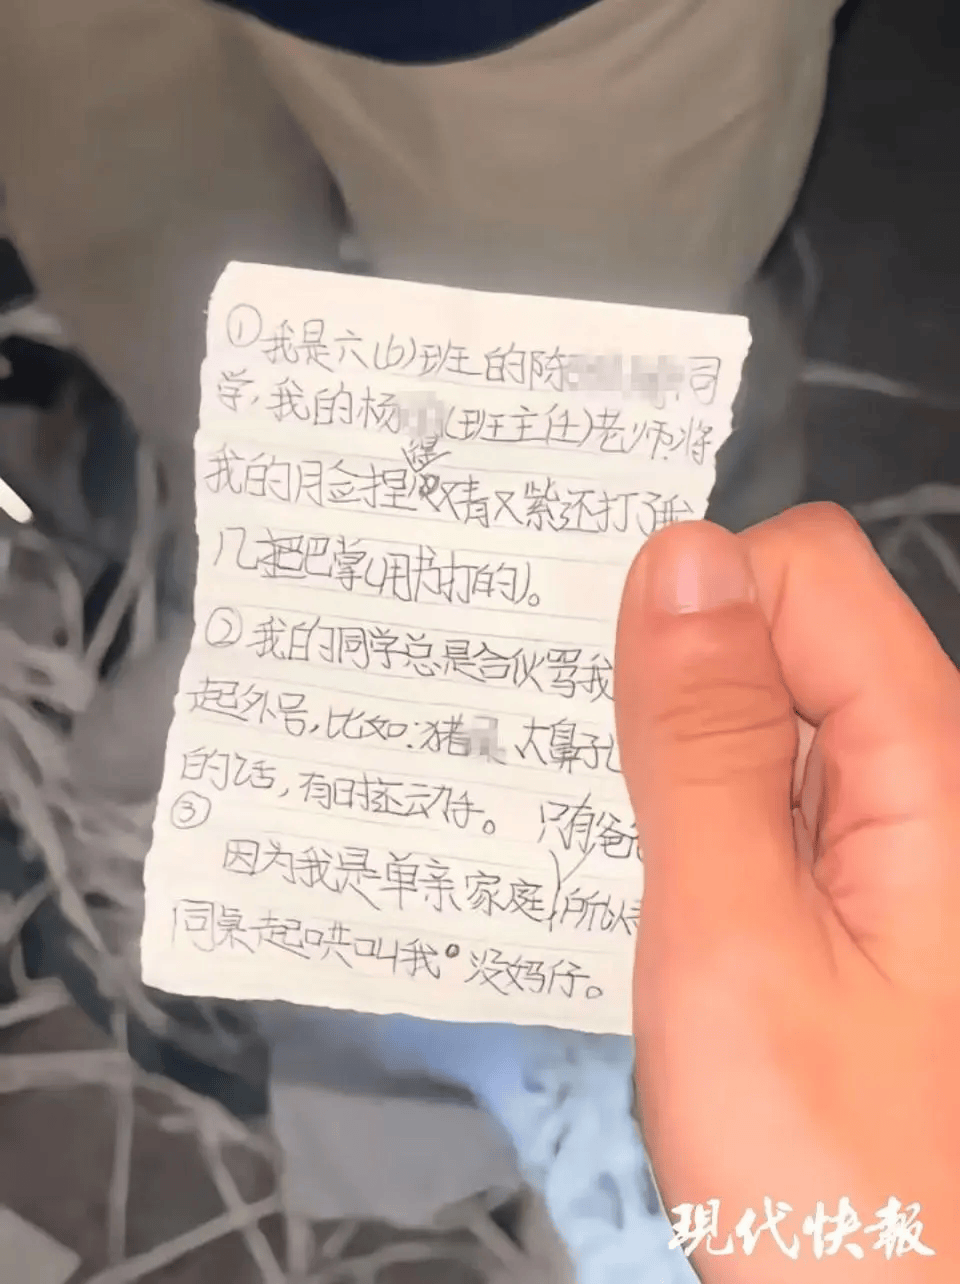 ①我是六(6)班的陈 司
学,我的杨 (班主任)老师将
我的脸捏得又青又紫还打了我
几把巴掌(用书打的)。
②我的同学总是合伙骂我
起外号,比如:猪 大鼻子
的话,有时还动手。
③
只有爸爸
因为我是单亲家庭,所以
同桌起哄叫我 没妈仔。
现代快報